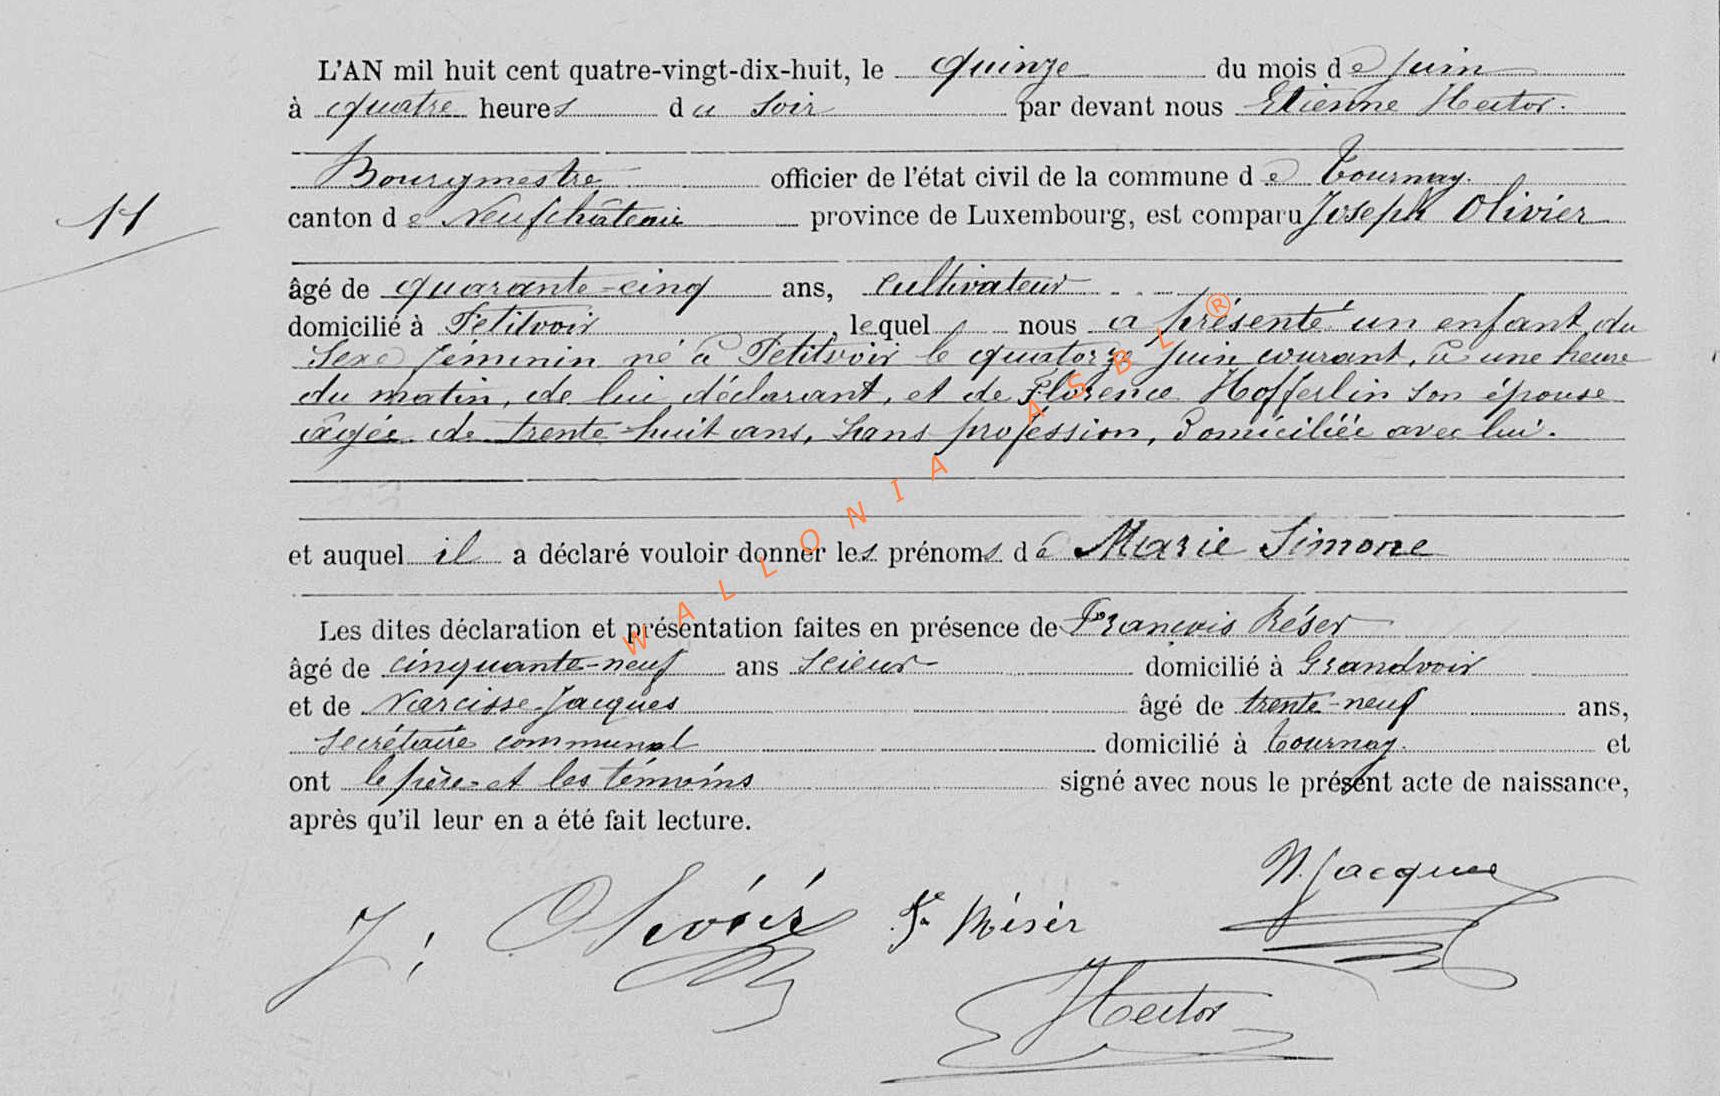 L'AN mil huit cent quatre-vingt-dix-huit, le quinze du mois de juin
à quatre heures du soir par devant nous Etienne Hector.
Bourgmestre officier de l'état civil de la commune de Tournay.
11
canton de Neufchâteau province de Luxembourg, est comparu Joseph Olivier
âgé de quarante-cinq ans, cultivateur
domicilié à Petitvoir, lequel nous a présenté un enfant du
sexe féminin né à Petitvoir le quatorze juin courant, à une heure
du matin, de lui déclarant, et de Florence Hofferlin son épouse
âgée de trente-huit ans, sans profession, domiciliée avec lui.
et auquel il a déclaré vouloir donner les prénoms de Marie Simone
Les dites déclaration et présentation faites en présence de François Réser
âgé de cinquante-neuf ans scieur domicilié à Grandvoir
et de Narcisse Jacques âgé de trente-neuf ans,
secrétaire communal domicilié à Tournay. et
ont le père et les témoins signé avec nous le présent acte de naissance,
après qu'il leur en a été fait lecture.
N. Jacques
J: Olivier Fs Réser
Hector
WALLONIA ASBL ®